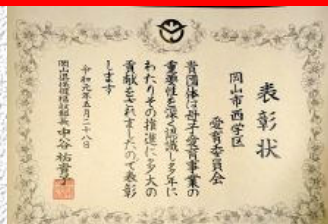 表彰状
岡山市西学区
愛育委員会
貴団体は母子愛育事業の
重要性を深く認識し多年に
わたりその推進に多大の
貢献をされましたので表彰
します
令和元年五月二十八日
岡山県保健福祉部長 中谷祐貴子